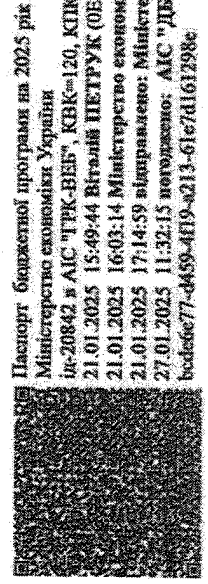 Паспорт бюджетної програми на 2025 рік
Міністерство економіки України
ін-20842 в АІС "ТРК-ВЕБ", КВК=120, КПК
21.01.2025 15:49:44 Віталій ПЕТРУК (0Е
21.01.2025 16:03:14 Міністерство економ
21.01.2025 17:14:59 відправлено: Міністе
27.01.2025 11:32:15 погоджено: АІС "ДБ